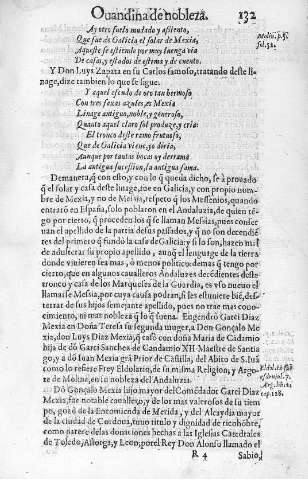 Quandina de nobleza. 132
Ay otro suelo mudado y assiento,
Que fue de Galicia el solar de Mexia,
Aqueste se estiende por muy luenga via
De casas, y estados de estema y de cuento.
Y Don Luys Zapata en su Carlos famoso, tratando deste li-
nage, dize tambien lo que se sigue.
Y aquel escudo de oro tan hermoso
Con tres faxas azules, es Mexia
Linage antiguo, noble, y generoso,
Quanto aquel claro sol produze y cria:
El tronco deste ramo frutuoso,
Que de Galicia viene, yo diria,
Aunque por tantas bocas ya derrama
La antigua sucession, la antigua fama.
Demanera, q con esto, y con lo q queda dicho, se à prouado
q el solar y casa deste linage, fue en Galicia, y con propio nom-
bre de Mexia, y no de Messia, respeto q los Messenios, quando
entraró en España, solo poblaron en el Andaluzia, de quien tẽ-
go por cierto, q proceden los q se llaman Messias, pues conser-
uan el apellido de la patria de sus passados, y q no son decendiẽ-
tes del primero q fundò la casa de Galicia: y si lo son, hazen mal
de adulterar su propio apellido, aunq el lenguage de la tierra
donde viuieren sea mas, ò menos politico: demas q tengo por
cierto, que en algunos caualleros Andaluzes decẽdientes deste
tronco y casa de los Marqueses de la Guardia, es vso nueuo el
llamarse Messia, por cuya causa podran, si les estuuiere biẽ, des-
terrar de sus hijos semejante apellido, pues no trae mas cono-
cimiento, ni mas nobleza q lo q suena. Engendrò Garci Diaz
Mexia en Doña Teresa su segunda muger, a Don Gonçalo Me-
xia, don Luys Diaz Mexia, q casò con doña Maria de Cadamio
hija de dõ Garci Sanchez de Candamio XII Maestre de Santia
go, y a dõ Iuan Mexia grã Prior de Castilla, del Abito de S. Iuã
como lo refiere Frey Eldolatio, de su misma Religion, y Argo-
te de Molina, en su nobleza del Andaluzia.
Dõ Gonçalo Mexia hijo mayor del Comẽdador Garci Diaz
Mexia, fue notable cauallero, y de los mas valerosos de su tiem
po, gozò de la Encomienda de Merida, y del Alcaydia mayor
de la ciudad de Cordoua, tuuo titulo y dignidad de ricohõbre,
como parece de las donaciones hechas a las Iglesias Catedrales
de Toledo, Astorga, y Leon, por el Rey Don Alonso llamado el
R 4 Sabio,